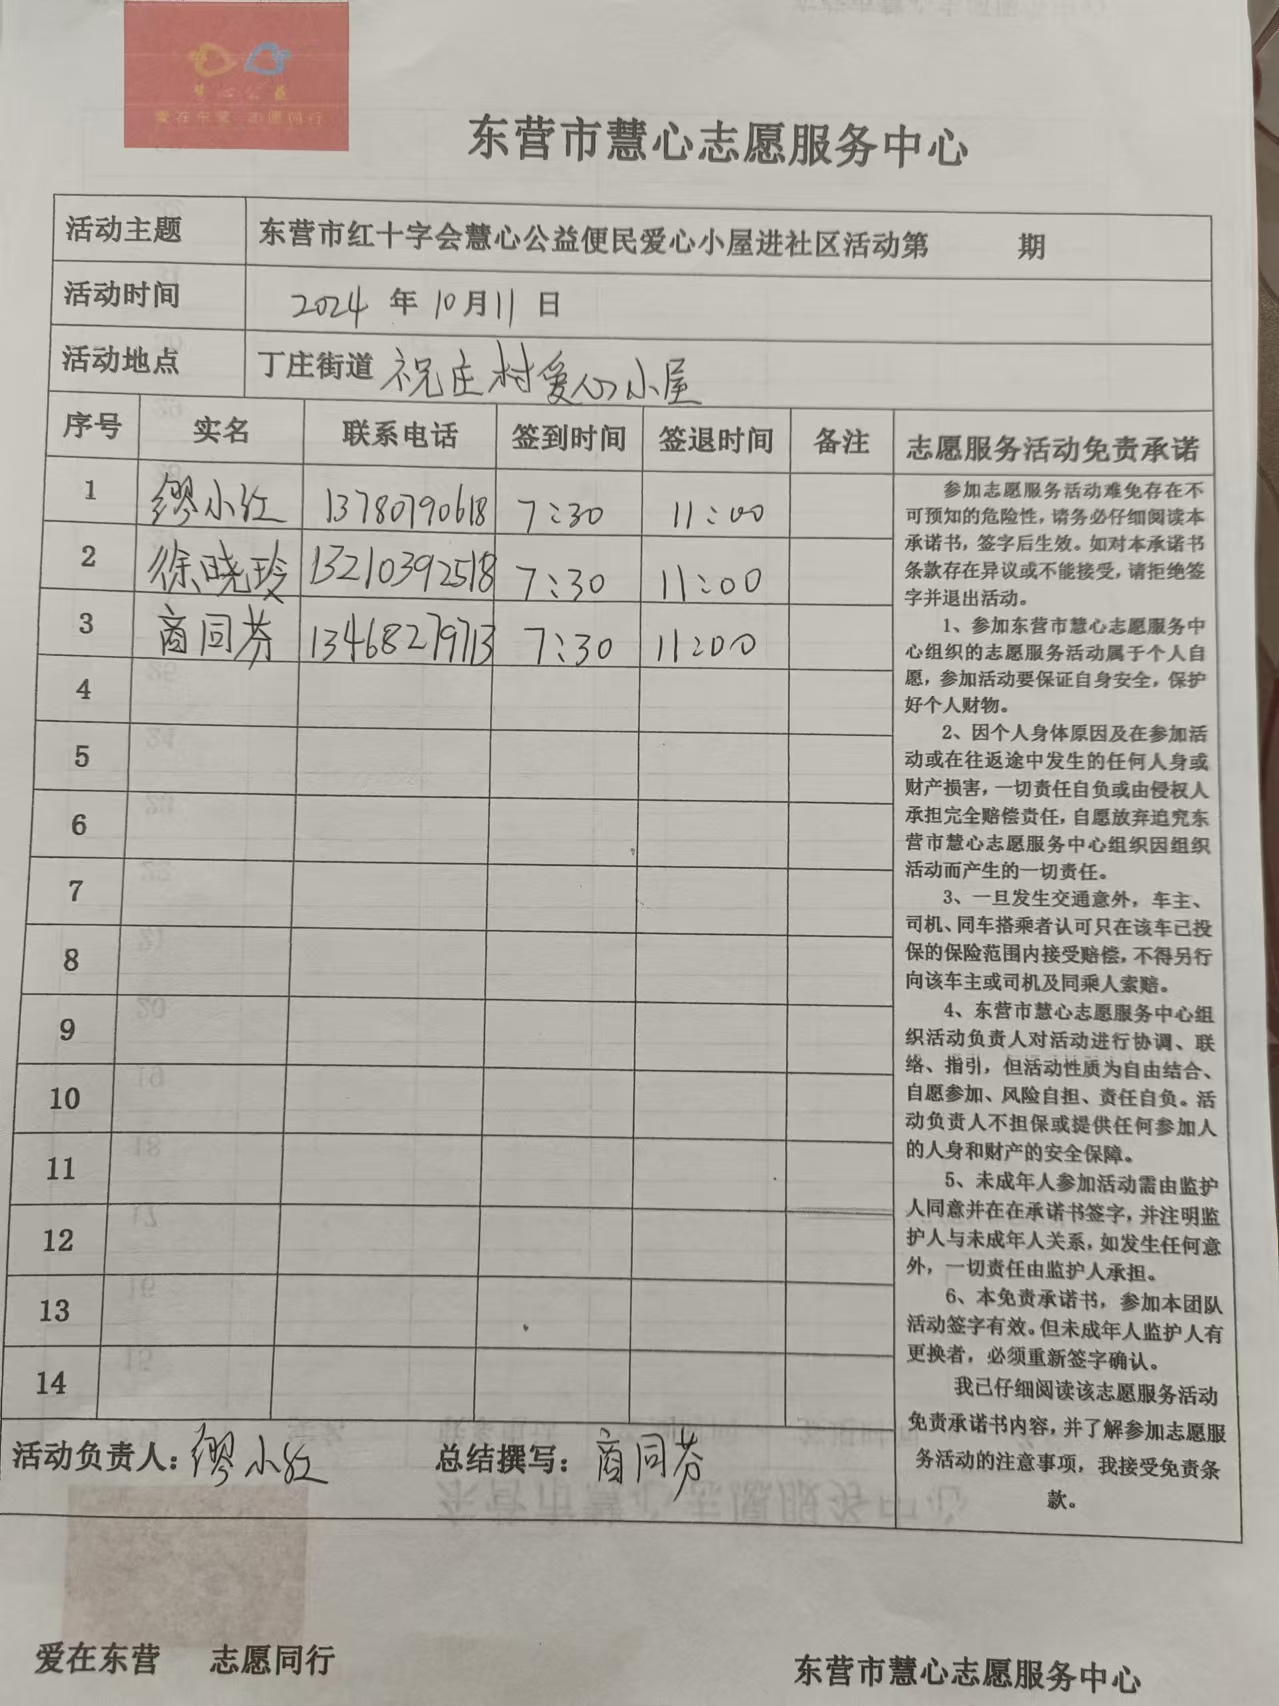 慧心公益
爱在东营 志愿同行
东营市慧心志愿服务中心
活动主题 东营市红十字会慧心公益便民爱心小屋进社区活动第 期
活动时间 2024 年 10月11日
活动地点 丁庄街道 祝庄村爱心小屋
序号 实名 联系电话 签到时间 签退时间 备注 志愿服务活动免责承诺
1 缪小红 13780790618 7:30 11:00
2 徐晓玲 13210392518 7:30 11:00
3 商同芬 13468279713 7:30 11:00
4
5
6
7
8
9
10
11
12
13
14
参加志愿服务活动难免存在不
可预知的危险性，请务必仔细阅读本
承诺书，签字后生效。如对本承诺书
条款存在异议或不能接受，请拒绝签
字并退出活动。
1、参加东营市慧心志愿服务中
心组织的志愿服务活动属于个人自
愿，参加活动要保证自身安全，保护
好个人财物。
2、因个人身体原因及在参加活
动或在往返途中发生的任何人身或
财产损害，一切责任自负或由侵权人
承担完全赔偿责任，自愿放弃追究东
营市慧心志愿服务中心组织因组织
活动而产生的一切责任。
3、一旦发生交通意外，车主、
司机、同车搭乘者认可只在该车已投
保的保险范围内接受赔偿，不得另行
向该车主或司机及同乘人索赔。
4、东营市慧心志愿服务中心组
织活动负责人对活动进行协调、联
络、指引，但活动性质为自由结合、
自愿参加、风险自担、责任自负。活
动负责人不担保或提供任何参加人
的人身和财产的安全保障。
5、未成年人参加活动需由监护
人同意并在在承诺书签字，并注明监
护人与未成年人关系，如发生任何意
外，一切责任由监护人承担。
6、本免责承诺书，参加本团队
活动签字有效。但未成年人监护人有
更换者，必须重新签字确认。
我已仔细阅读该志愿服务活动
免责承诺书内容，并了解参加志愿服
务活动的注意事项，我接受免责条
款。
活动负责人：缪小红 总结撰写：商同芬
爱在东营 志愿同行 东营市慧心志愿服务中心